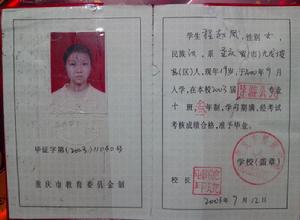 毕证字第(2003)11040号
重庆市教育委员会制
学生程 凤,性别女,
民族汉,系重庆省(市)九龙坡
县(区)人,现年19岁,于2000年9月
入学,在本校2003届 专业
十班,叁年制,学习期满,经考试
考核成绩合格,准予毕业。
学校(盖章)
校长
2003年7月12日